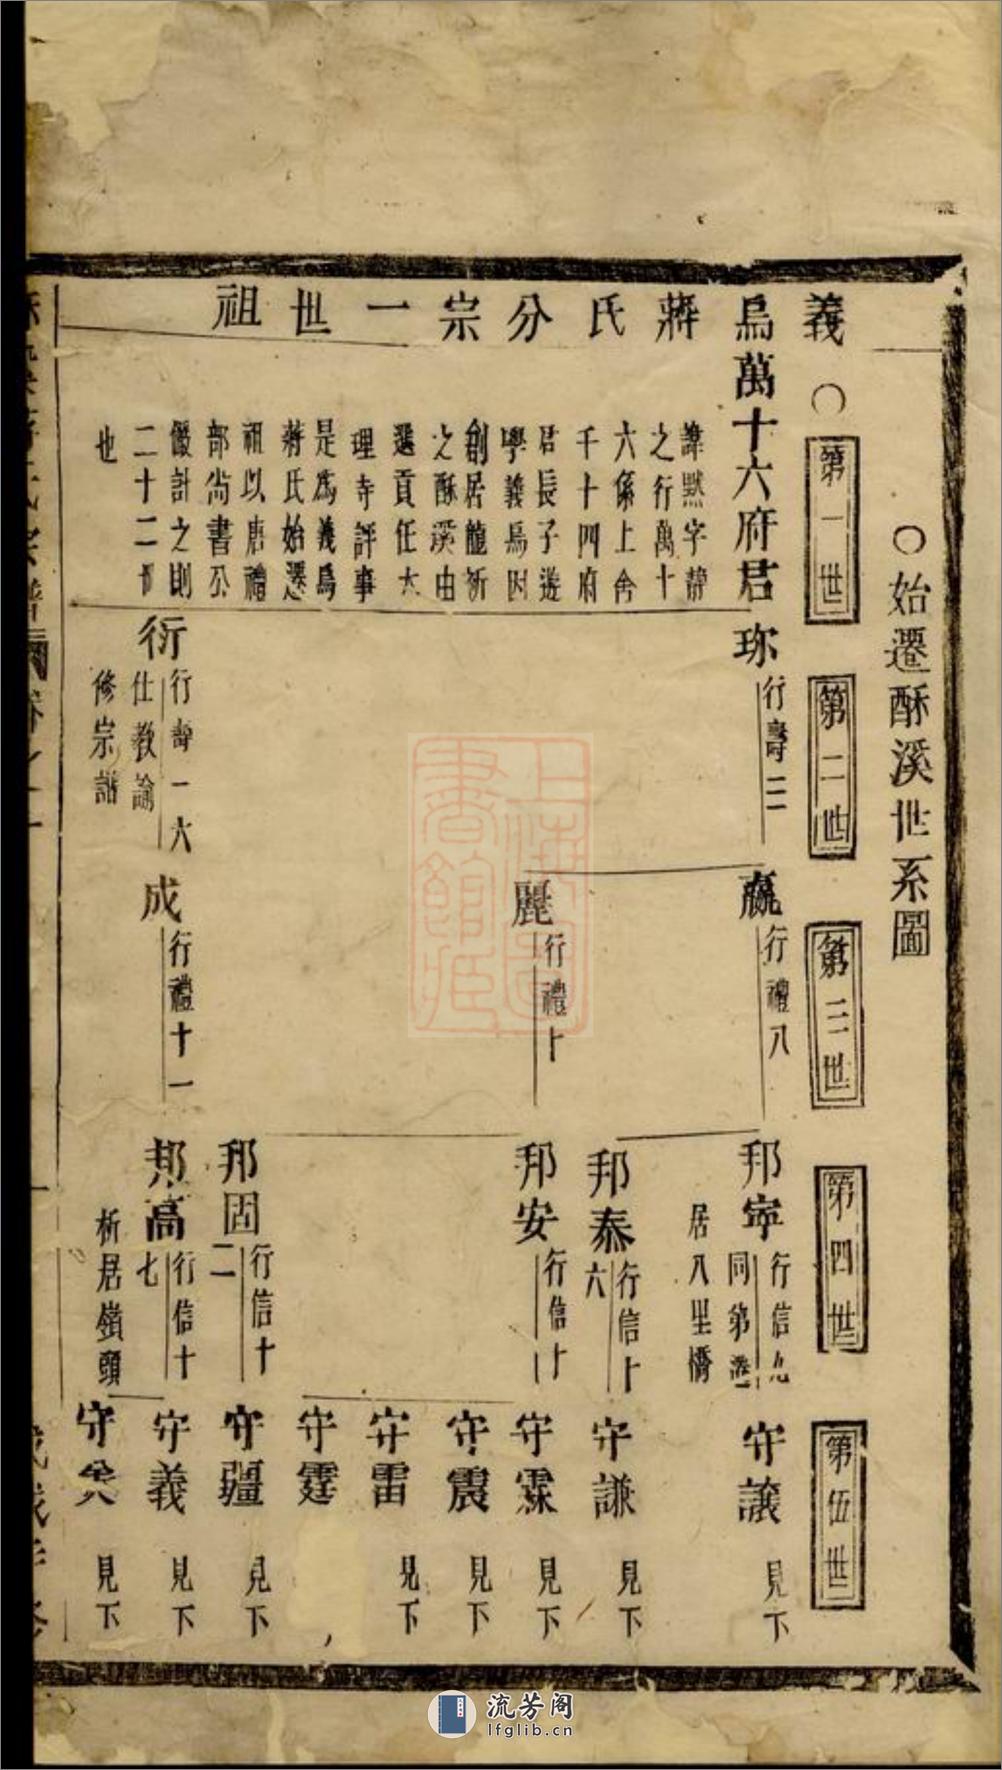 ○始遷酥溪世系圖
義烏蔣氏分宗一世祖
○
第一世
第二世
第三世
第四世
第伍世
萬十六府君
諱默字靜
之行萬十
六係上舍
千十四府
君長子遊
學義烏因
創居龍祈
之酥溪由
選貢任大
理寺評事
是爲義烏
蔣氏始遷
祖以唐禮
部尚書公
儼計之則
二十二世
也
珎
行壽二
衍
行壽一六
仕教諭
修宗譜
嬴
行禮八
麗
行禮十
成
行禮十一
邦寧
行信九
同弟遷
居八里橋
邦泰
行信十
六
邦安
行信十
邦固
行信十
二
邦高
行信十
七
析居嶺頭
守讓
見下
守謙
見下
守霖
見下
守震
見下
守雷
見下
守霆
守疆
見下
守義
見下
守
見下
上海圖書館藏
流芳阁
lfglib.cn